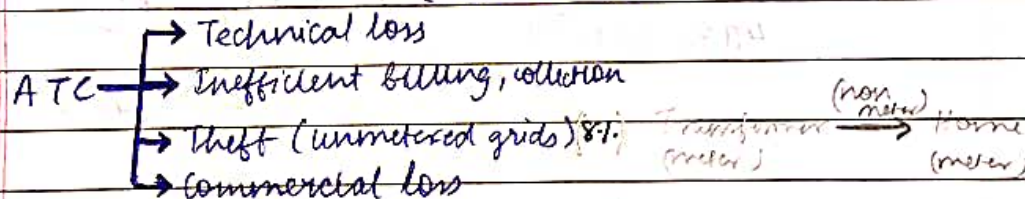 Technical loss
ATC
Inefficient billing, collection
Theft (unmetered grids) 8%. Transformer (non meter) → Home
(meter) (meter)
Commercial loss